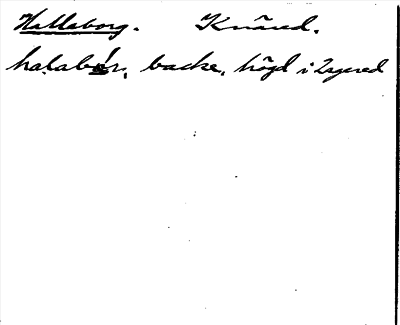 Hallaborg. Knäred.
halabór, backe, höjd i Zagered